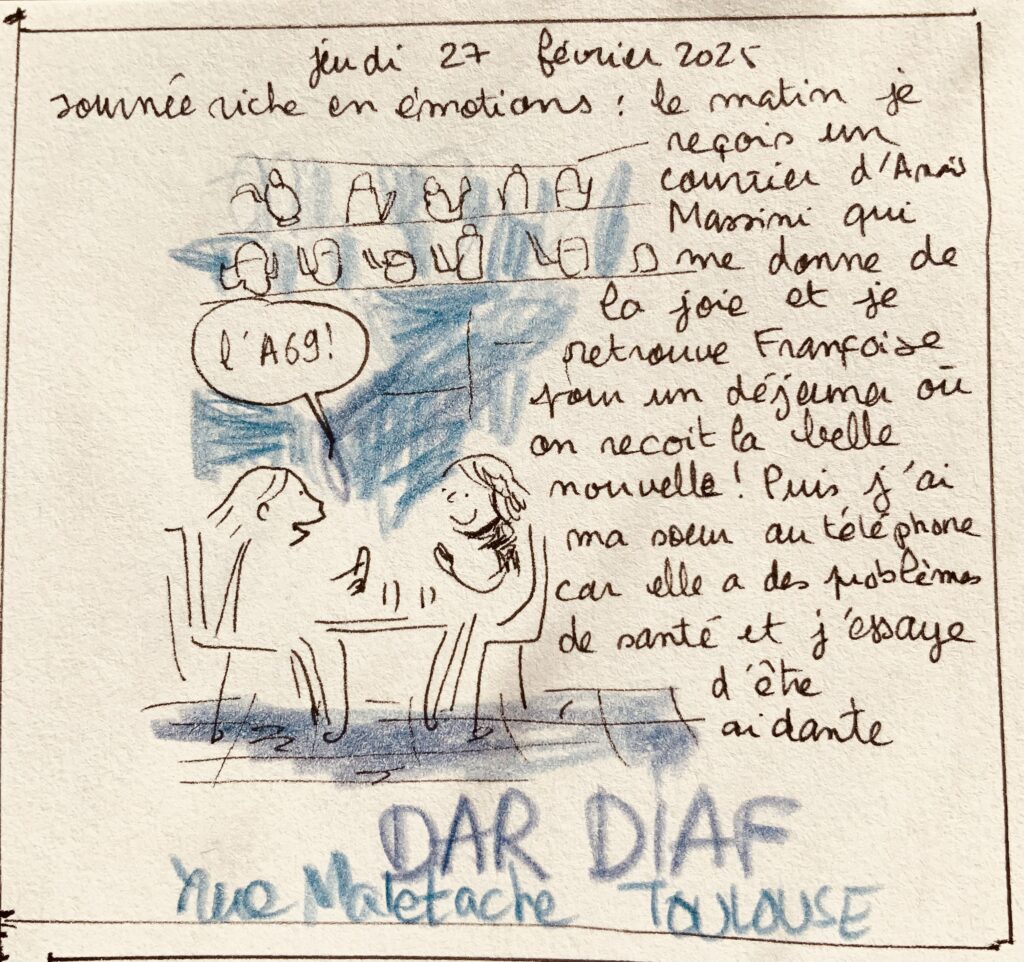 jeudi 27 février 2025
Journée riche en émotions : le matin je
reçois un
courrier d'Anaïs
Massini qui
me donne de
la joie et je
retrouve Françoise
pour un déjeuner où
on recoit la belle
nouvelle ! Puis j'ai
ma soeur au téléphone
car elle a des problèmes
de santé et j'essaye
d'être
aidante
l'A69!
DAR DIAF
rue Maletache TOULOUSE